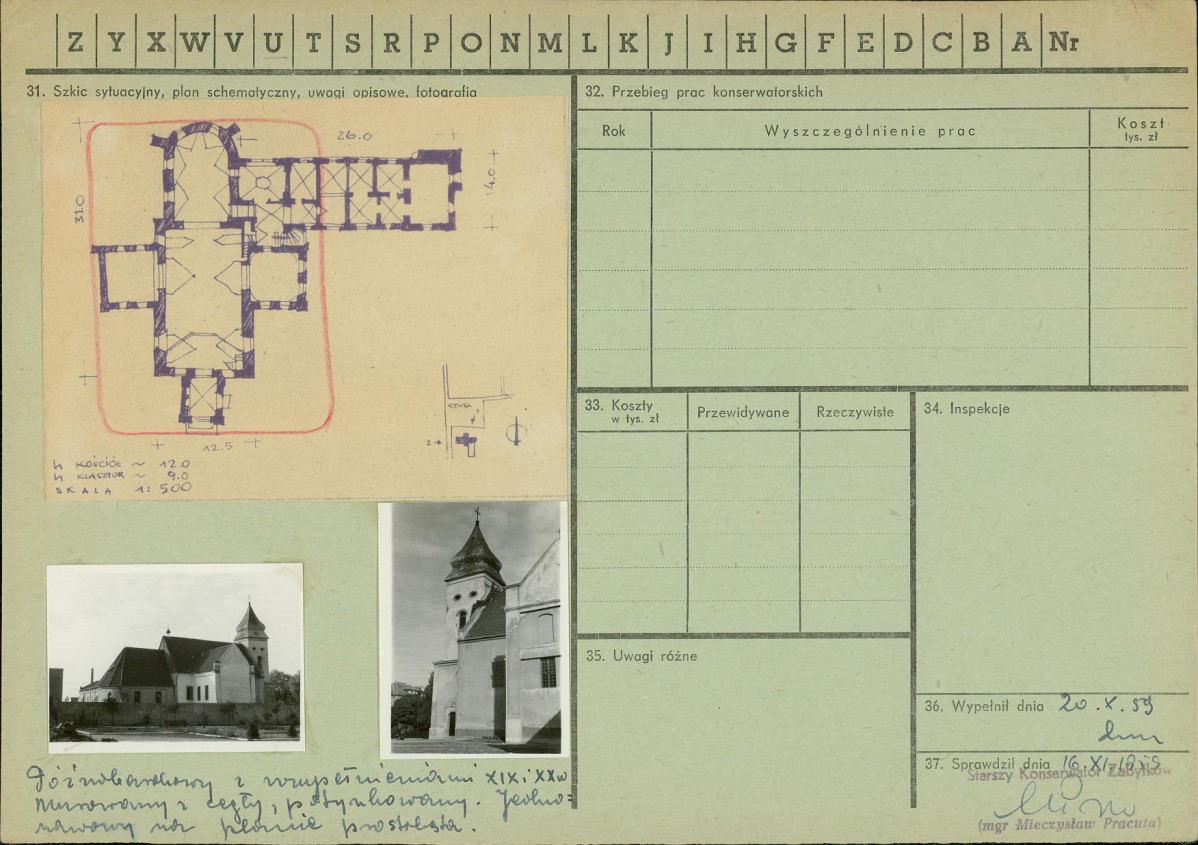 Z Y X W V U T S R P O N M L K J I H G F E D C B A Nr
31. Szkic sytuacyjny, plan schematyczny, uwagi opisowe, fotografia
26.0
14.0
31.0
12.5
h KOŚCIÓŁ ~ 12.0
h KLASZTOR ~ 9.0
SKALA 1:500
Późnobarokowy z uzupełnieniami XIX i XX w
Murowany z cegły, potynkowany. Jedno=
nawowy na planie prostokąta.
32. Przebieg prac konserwatorskich
Rok
Wyszczególnienie prac
Koszt
tys. zł
33. Koszty
w tys. zł
Przewidywane
Rzeczywiste
34. Inspekcje
35. Uwagi różne
36. Wypełnił dnia 20.X.59
37. Sprawdził dnia 16.XI.1959
Starszy Konserwator Zabytków
(mgr Mieczysław Pracuta)